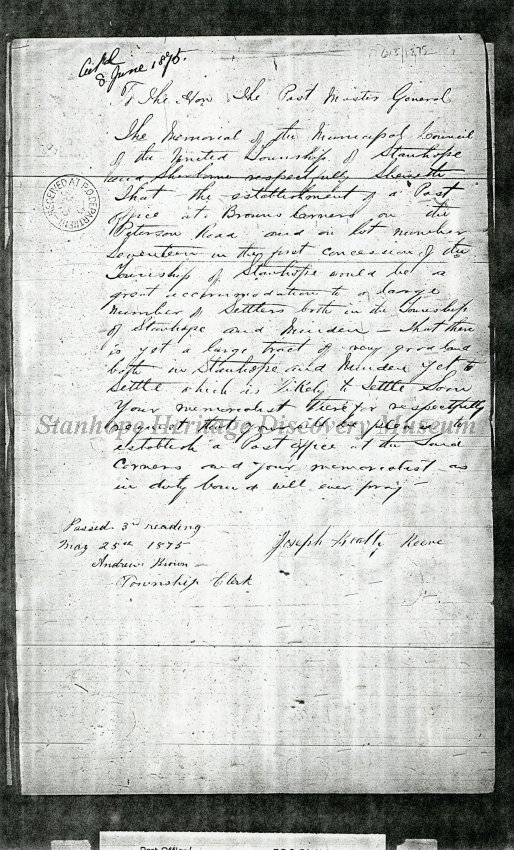 Ackd
8 June 1875.
613/1875
To The Hon The Post Master General
The Memorial of the Municipal Council
of the United Township of Stanhope
and respectfully Sheweth
That the establishment of a Post
office at Browns Corners on the
Peterson Road and on lot number
Seventeen in the first concession of the
Township of Stanhope would be a
great accommodation to a large
number of Settlers both in the Township
of Stanhope and Minden – That there
is yet a large tract of very good land
both in Stanhope and Minden yet to
Settle which is likely to Settle Soon
Your memorialist therefor respectfully
request that you will be pleased to
establish a Post office at the Said
Corners and your memorialist as
in duty bound will ever pray –
Passed 3rd reading
May 25th 1875
Andrew Brown –
Township Clerk
Joseph Reeve
RECEIVED AT P.O. DEPARTMENT
Stanhope Heritage Discovery Museum